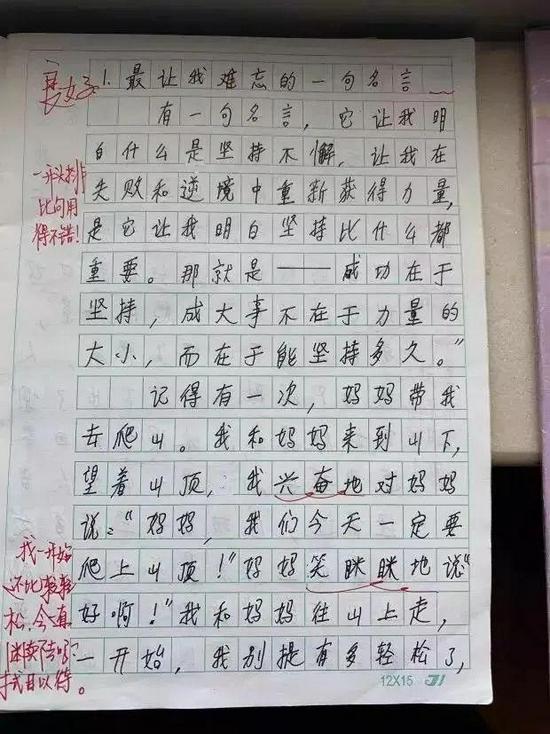 1.最让我难忘的一句名言
有一句名言，它让我明
白什么是坚持不懈，让我在
失败和逆境中重新获得力量，
是它让我明白坚持比什么都
重要。那就是——成功在于
坚持，成大事不在于力量的
大小，而在于能坚持多久。”
记得有一次，妈妈带我
去爬山。我和妈妈来到山下，
望着山顶，我兴奋地对妈妈
说：“妈妈，我们今天一定要
爬上山顶！”妈妈笑眯眯地说“
好啊！”我和妈妈往山上走，
一开始，我别提有多轻松了，
一开头排
比句用
得不错！
我一开始
还比较轻
松，
拭目以待。
12X15